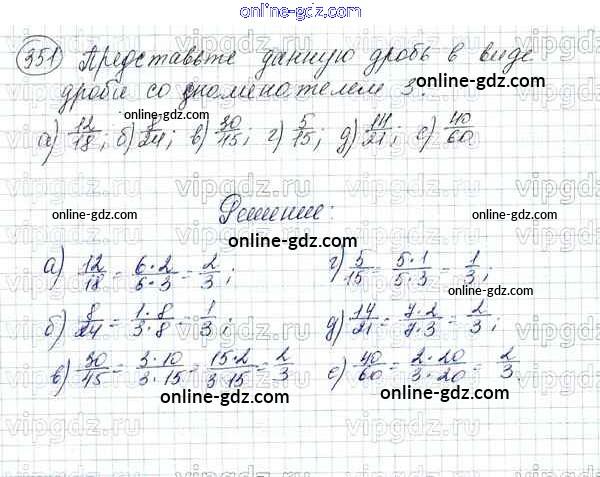 online-gdz.com
351 Представьте данную дробь в виде
дроби со знаменателем 3.
online-gdz.com
а) 12/18; б) 8/24; в) 30/45; г) 5/15; д) 14/21; е) 40/60.
online-gdz.com
Решение:
online-gdz.com
а) 12/18 = 6·2/6·3 = 2/3; г) 5/15 = 5·1/5·3 = 1/3;
б) 8/24 = 1·8/3·8 = 1/3; д) 14/21 = 7·2/7·3 = 2/3;
в) 30/45 = 3·10/3·15 = 15·2/3·15 = 2/3 е) 40/60 = 2·20/3·20 = 2/3
online-gdz.com
vipgdz.ru